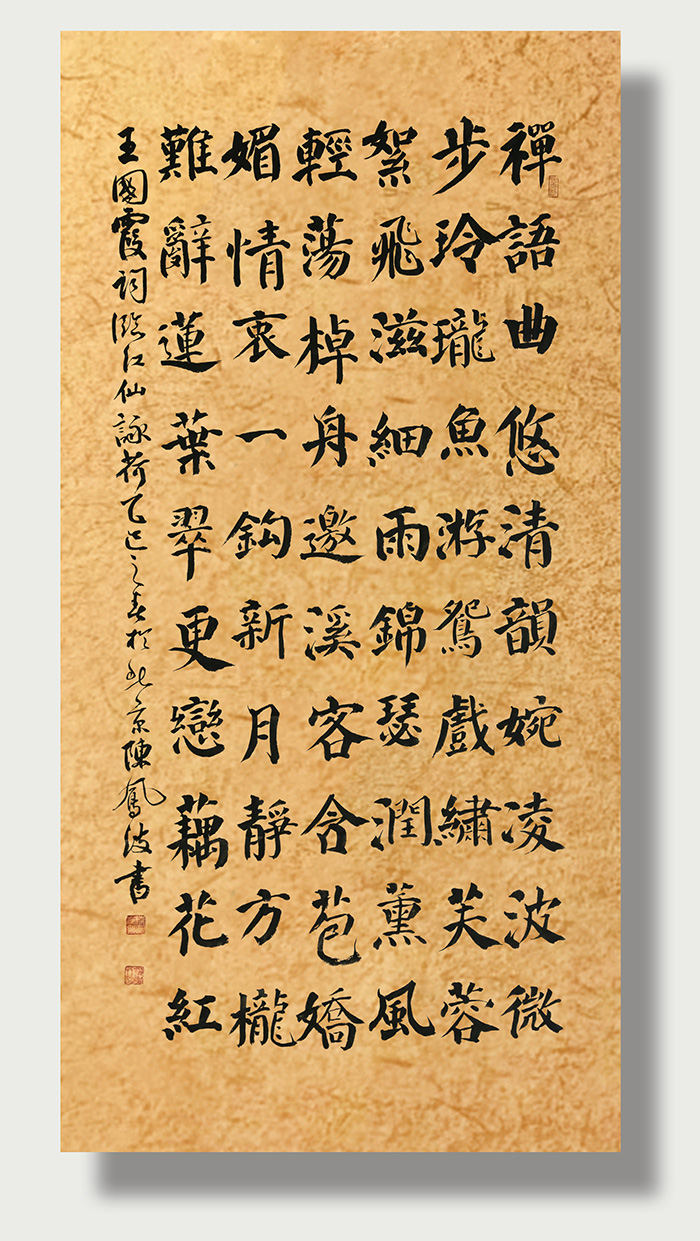 禪語曲悠清韻婉凌波微
步玲瓏魚游鴛戲繡芙蓉
絮飛滋細雨錦瑟潤薰風
輕蕩棹舟邀溪客含苞嬌
媚情衷一鈎新月靜方櫳
難辭蓮葉翠更戀藕花紅
王國霞詞臨江仙詠荷乙巳之春於北京陳鳳波書